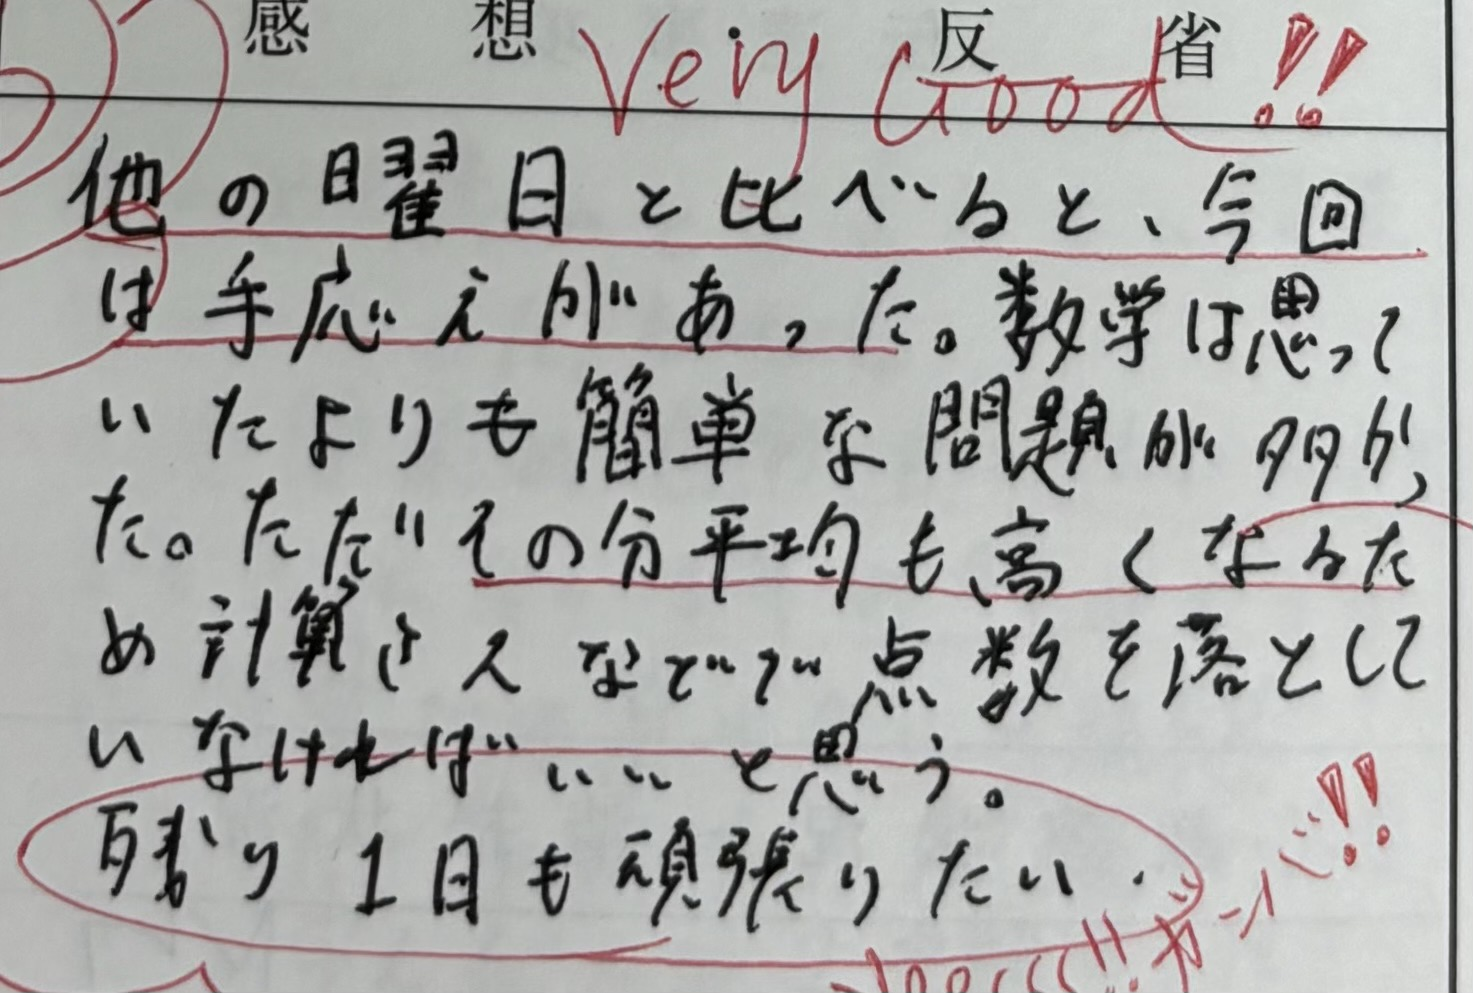 感想・反省
Very Good!!
他の曜日と比べると、今回
は手応えがあった。数学は思って
いたよりも簡単な問題が多かっ
た。ただその分平均も高くなるた
め計算ミスなどで点数を落として
いなければいいと思う。
残り1日も頑張りたい.
ガンバ!!